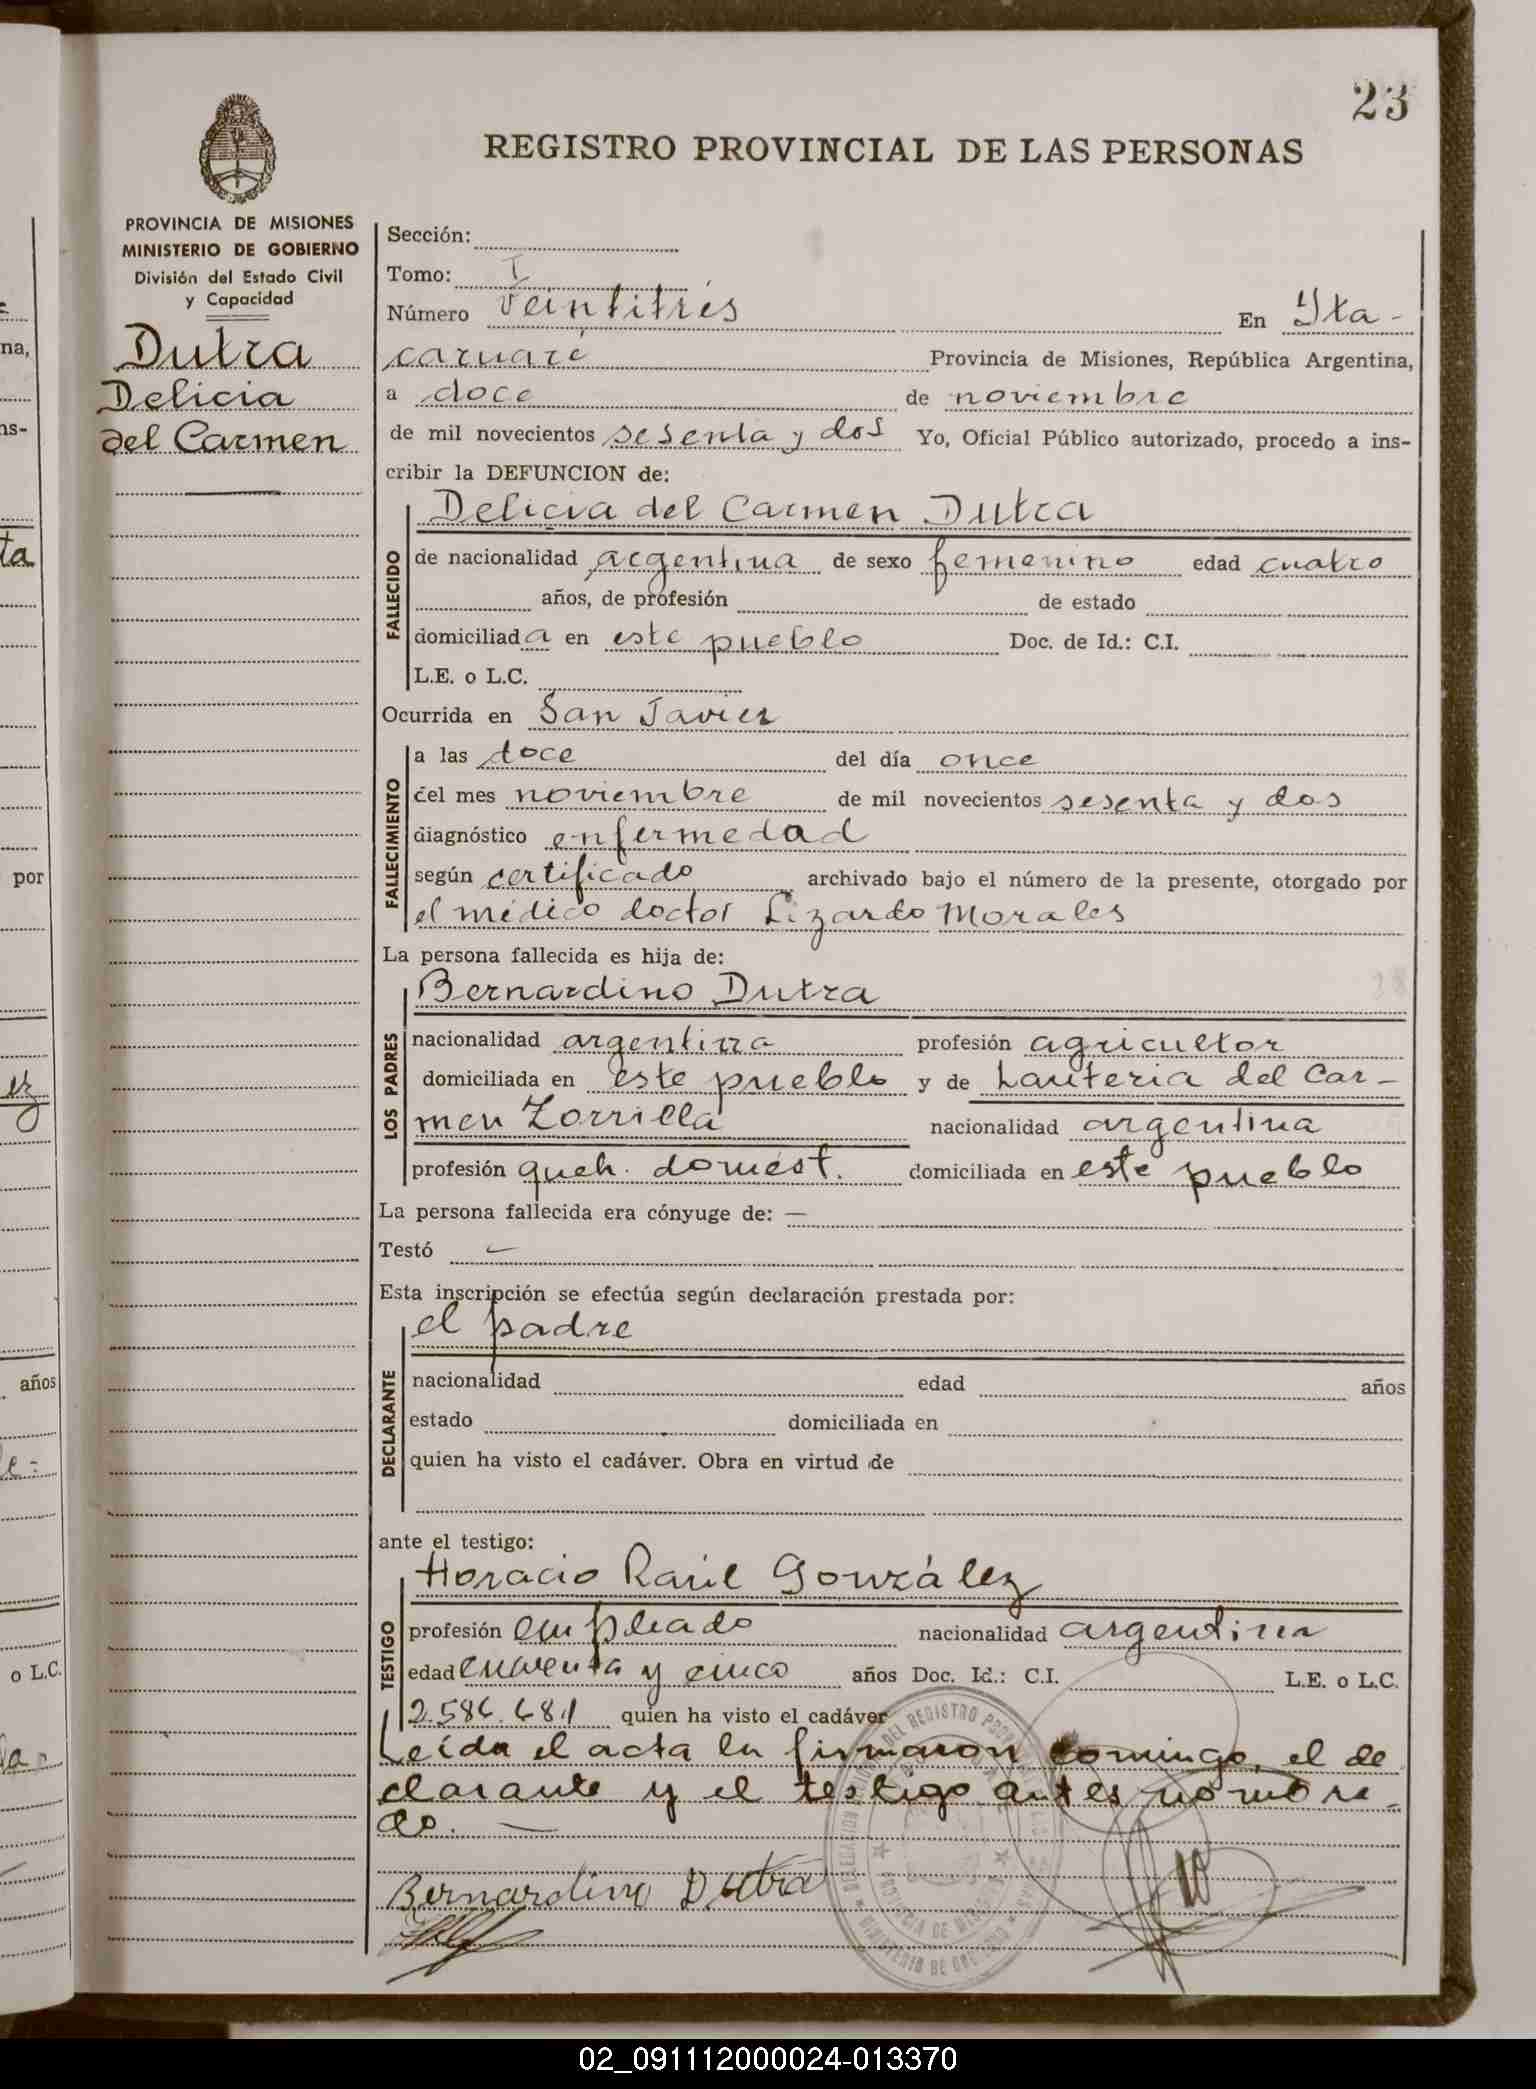 23
REGISTRO PROVINCIAL DE LAS PERSONAS
PROVINCIA DE MISIONES
MINISTERIO DE GOBIERNO
División del Estado Civil
y Capacidad
Dutra
Delicia
del Carmen
Sección:
Tomo: I
Número veintitrés En Yta-
caruaré Provincia de Misiones, República Argentina,
a doce de noviembre
de mil novecientos sesenta y dos Yo, Oficial Público autorizado, procedo a ins-
cribir la DEFUNCION de:
FALLECIDO
Delicia del Carmen Dutra
de nacionalidad argentina de sexo femenino edad cuatro
años, de profesión de estado
domiciliada en este pueblo Doc. de Id.: C.I.
L.E. o L.C.
Ocurrida en San Javier
FALLECIMIENTO
a las doce del día once
del mes noviembre de mil novecientos sesenta y dos
diagnóstico enfermedad
según certificado archivado bajo el número de la presente, otorgado por
el médico doctor Lizardo Morales
La persona fallecida es hija de:
LOS PADRES
Bernardino Dutra
nacionalidad argentina profesión agricultor
domiciliada en este pueblo y de Lauteria del Car-
men Zorrilla nacionalidad argentina
profesión queh. domést. domiciliada en este pueblo
La persona fallecida era cónyuge de: —
Testó —
Esta inscripción se efectúa según declaración prestada por:
DECLARANTE
el padre
nacionalidad edad años
estado domiciliada en
quien ha visto el cadáver. Obra en virtud de
ante el testigo:
TESTIGO
Horacio Raúl González
profesión empleado nacionalidad argentina
edad cuarenta y cinco años Doc. Id.: C.I. L.E. o L.C.
2.586.681 quien ha visto el cadáver
Leída el acta la firmaron conmigo, el de
clarante y el testigo antes nombra-
do. —
Bernardino Dutra
na,
ns-
ta
por
ez
años
o L.C.
02_091112000024-013370